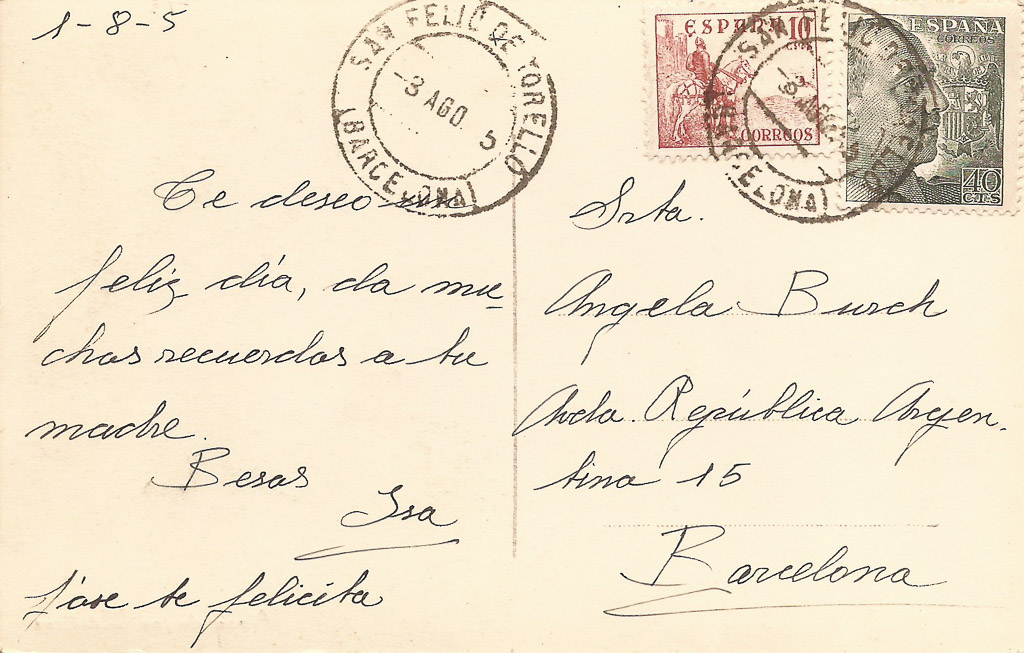 1-8-5
SAN FELIU DE TORELLO
-3 AGO. 5
(BARCELONA)
ESPAÑA 10
CTS
CORREOS
ESPAÑA
CORREOS
40
CTS
Te deseo un
feliz día, da mu-
chos recuerdos a tu
madre.
Besos
Isa
José te felicita
Srta.
Angela Burch
Avda. República Argen-
tina 15
Barcelona